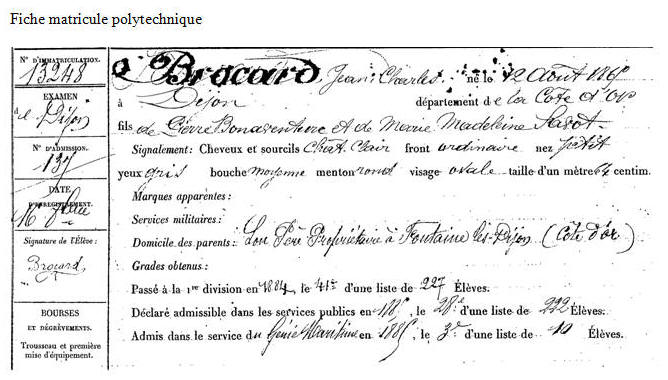 Fiche matricule polytechnique
N° D'IMMATRICULATION.
13248
EXAMEN
de Dijon
N° D'ADMISSION.
137
DATE
D'ENREGISTREMENT.
Signature de l'Élève:
Brocard
BOURSES
ET DÉGRÈVEMENTS.
Trousseau et première
mise d'équipement.
Brocard Jean Charles né le 12 Août 186
à Dijon département de la Côte d'Or
fils de Pierre Bonaventure et de Marie Madeleine
Signalement: Cheveux et sourcils Chat. Clair front ordinaire nez petit
yeux gris bouche moyenne menton rond visage ovale taille d'un mètre 64 centim.
Marques apparentes:
Services militaires:
Domicile des parents: Son Père Propriétaire à Fontaine les-Dijon (Côte d'or)
Grades obtenus:
Passé à la 1re division en 1884, le 41e d'une liste de 227 Élèves.
Déclaré admissible dans les services publics en 1885, le 28e d'une liste de 222 Élèves.
Admis dans le service du Génie Maritime en 1885, le 3e d'une liste de 10 Élèves.